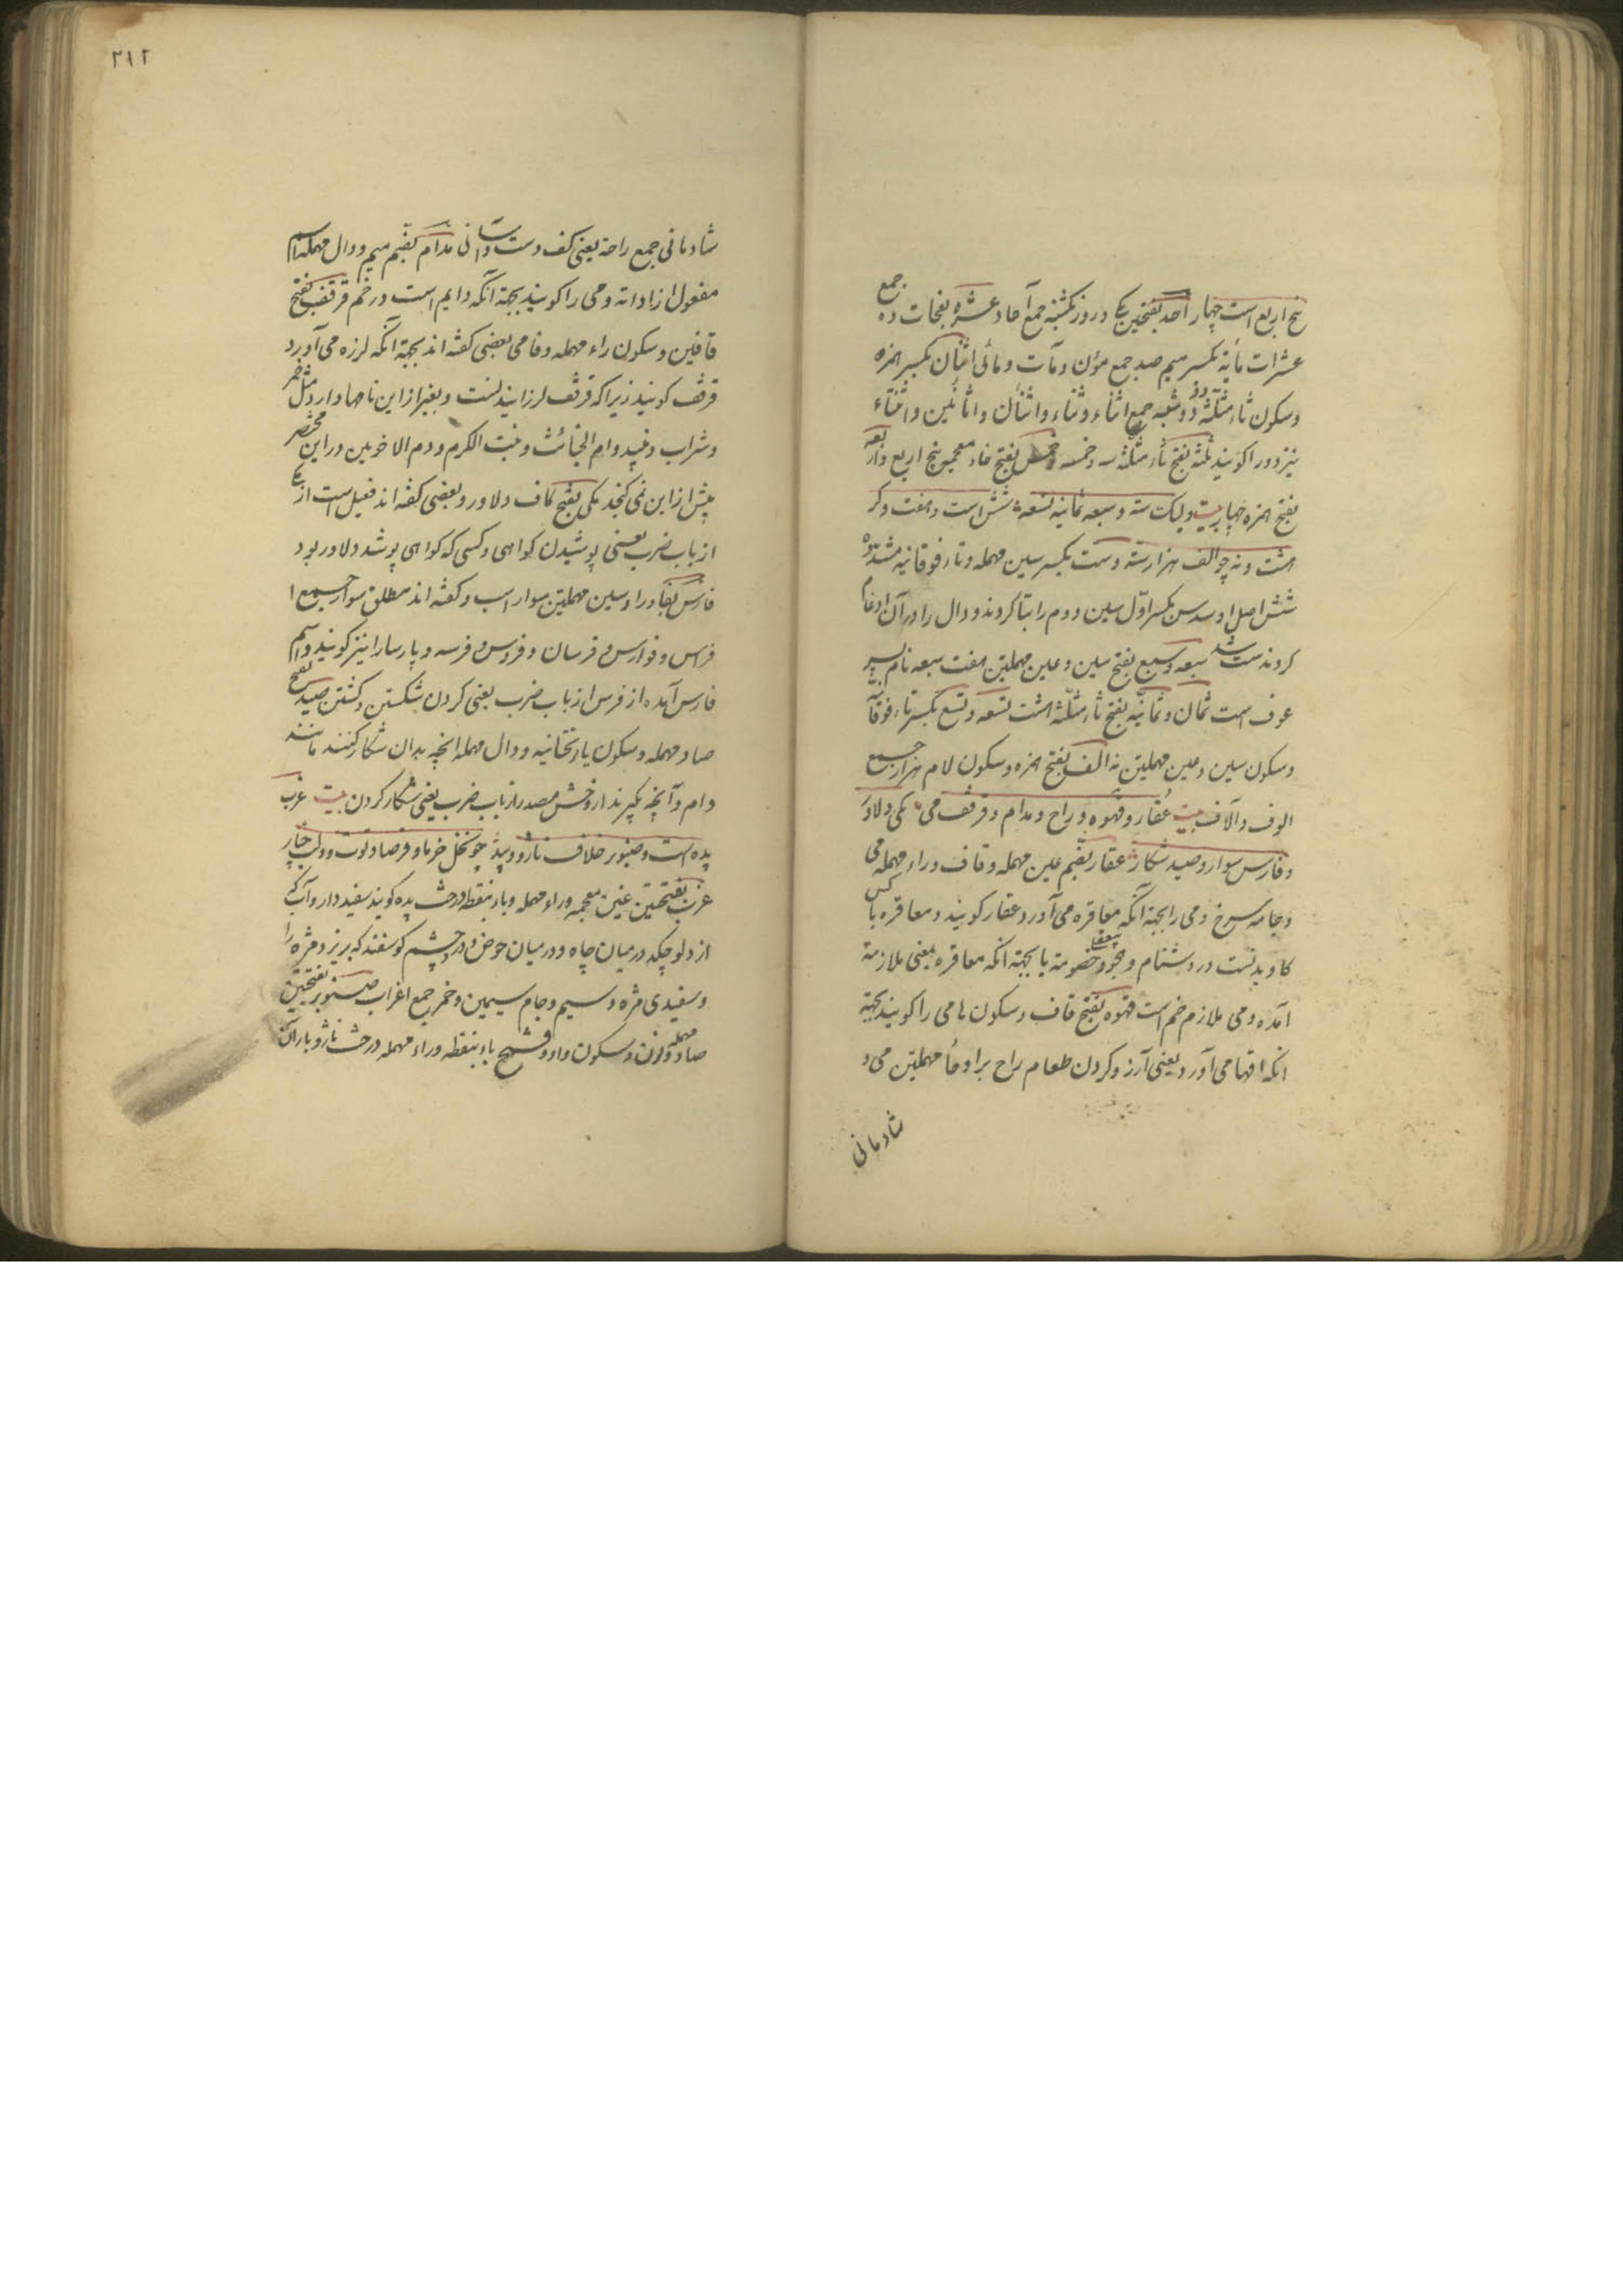 پنج اربع است چهار احد بفتحین یکی و روز یکشنبه جمع آحاد عشره بفتحات ده جمع
عشرات مأیة بکسر میم صد جمع مؤن و مآت و مائی اثنان بکسر همزه
و سکون ثاء مثلثه دو و دوشنبه جمع اثناء و ثناء و اثنان و اثانین و اثناء
نیز دو را کویند ثلثه بفتح ثاء مثلثه سه و خمسه خمس بفتح خاء معجمه پنج اربع و اربعه
بفتح همزه چهار بیت ولیک سته و سبعه ثمانیه تسعه شش است و هفت و کر
هشت و نه چو الف هزار سته و ست بکسر سین مهمله و تاء فوقانیه مشدّده
شش اصل او سدس بکسر اوّل سین دوم را بتا کردند و دال را در آن ادغام
کردند ست شد سبعه و سبع بفتح سین و عین مهملتین هفت سبعه نام پسر
عوف است ثمان و ثمانیه بفتح ثاء مثلثه هشت تسعه و تسع بکسر تاء فوقانیّه
و سکون سین و عین مهملتین نه الف بفتح همزه و سکون لام هزار جمع
الوف و آلاف بیت عُقار و قهوه و راح و مدام و قرقف می کمی دلاور
و فارس سوار و صید شکار عقار بضم عین مهمله و قاف و راء مهمله می
و جامه سرخ و می را بجهة آنکه معاقره می آورد عقار کویند و معاقره با کسی
کاویدنست در دشنام و هجو و خصومة یا بجهة انکه معاقره بمعنی ملازمة
آمده و می ملازم خم است قهوه بفتح قاف و سکون ها می را کویند بجهة
انکه اقها می آورد یعنی آرزو کردن طعام راح برا و حاء مهملتین می و
شادمانی
۲۱۲
شادمانی جمع راحة یعنی کف دست و آسانی مدام بضم میم و دال مهمله اسم
مفعول از ادامه و می را کویند بجهة آنکه دایم است در خم قرقف بفتح
قافین و سکون راء مهمله و فا می بعضی کفته اند بجهة آنکه لرزه می آورد
قرقف کویند زیرا که قرقف لرزانیدنست و بغیر از این نامها دارد مثل خمر
و شراب و نبید و ام الخبائث و بنت الکرم و دم الاخوین در این مختصر
بیش از این نمی کنجد کمی بفتح کاف دلاور و بعضی کفته اند فعیل است از
از باب ضرب یعنی پوشیدن کواهی و کسی که کواهی پوشد دلاور بود
فارس بفا و را و سین مهملتین سوار اسب و کفته اند مطلق سوار جمع ا
فراس و فوارس و فرسان و فروس و فرسه و پارسا را نیز کویند و اسم
فارس آمده از فرس از باب ضرب یعنی کردن شکستن و کشتن صید بفتح
صاد مهمله و سکون یاء تحتانیه و دال مهمله انچه بدان شکار کنند مانند
دام و آنچه بکیرند از وحش مصدر از باب ضرب یعنی شکار کردن بیت غرب
پده است و صنوبر خلاف ناژو و بید چو نخل خرما و فرصاد توت و دلب چنار
غرب بفتحتین غین معجمه و راء مهمله و باء بنقطه درخت پده کویند سفیددار و آب که
از دلو چکد در میان چاه و در میان حوض و در دچشم کوسفند که بریزد مژه را
و سفیدی مژه و سیم و جام سیمین و خمر جمع اغراب صنوبر بفتحتین
صاد مهمله و نون و سکون واو و فتح باء بنقطه و راء مهمله درخت ناژو بار آن